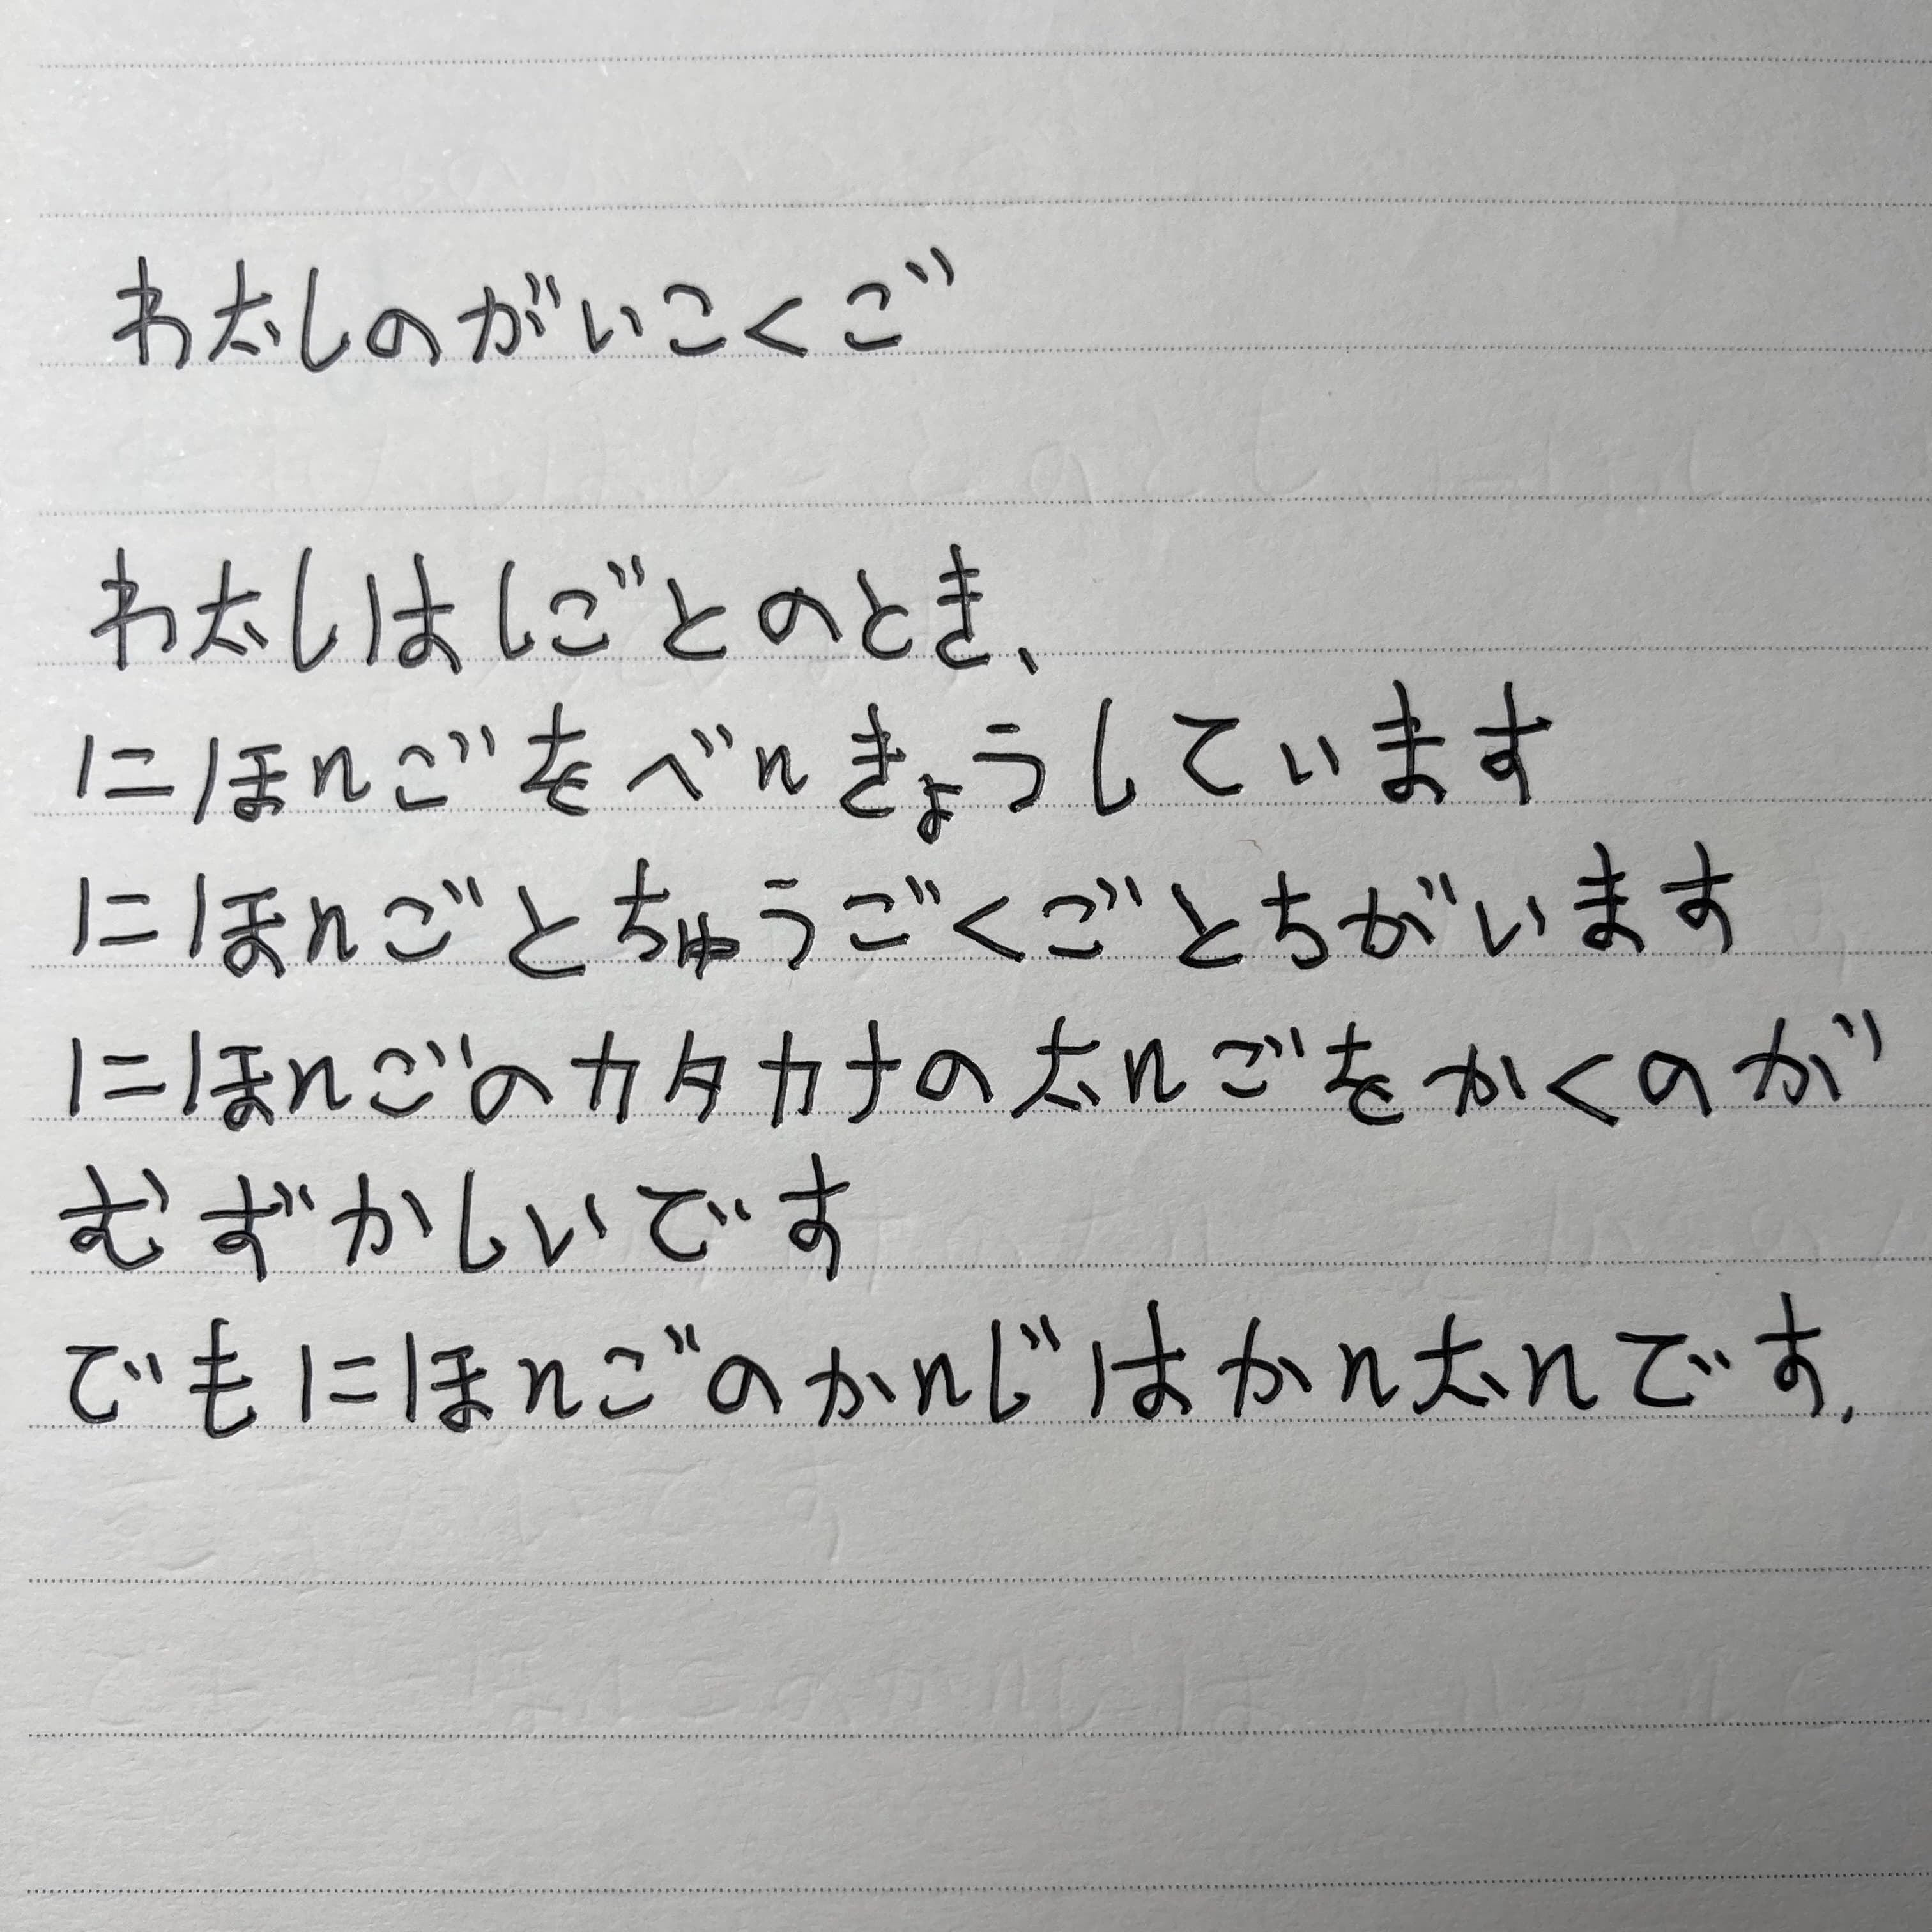 わたしのがいこくご
わたしはしごとのとき、
にほんごをべんきょうしています
にほんごとちゅうごくごとちがいます
にほんごのカタカナのたんごをかくのが
むずかしいです
でもにほんごのかんじはかんたんです.